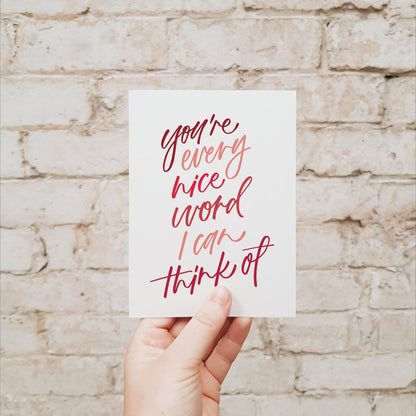 you're
every
nice
word
I can
think of